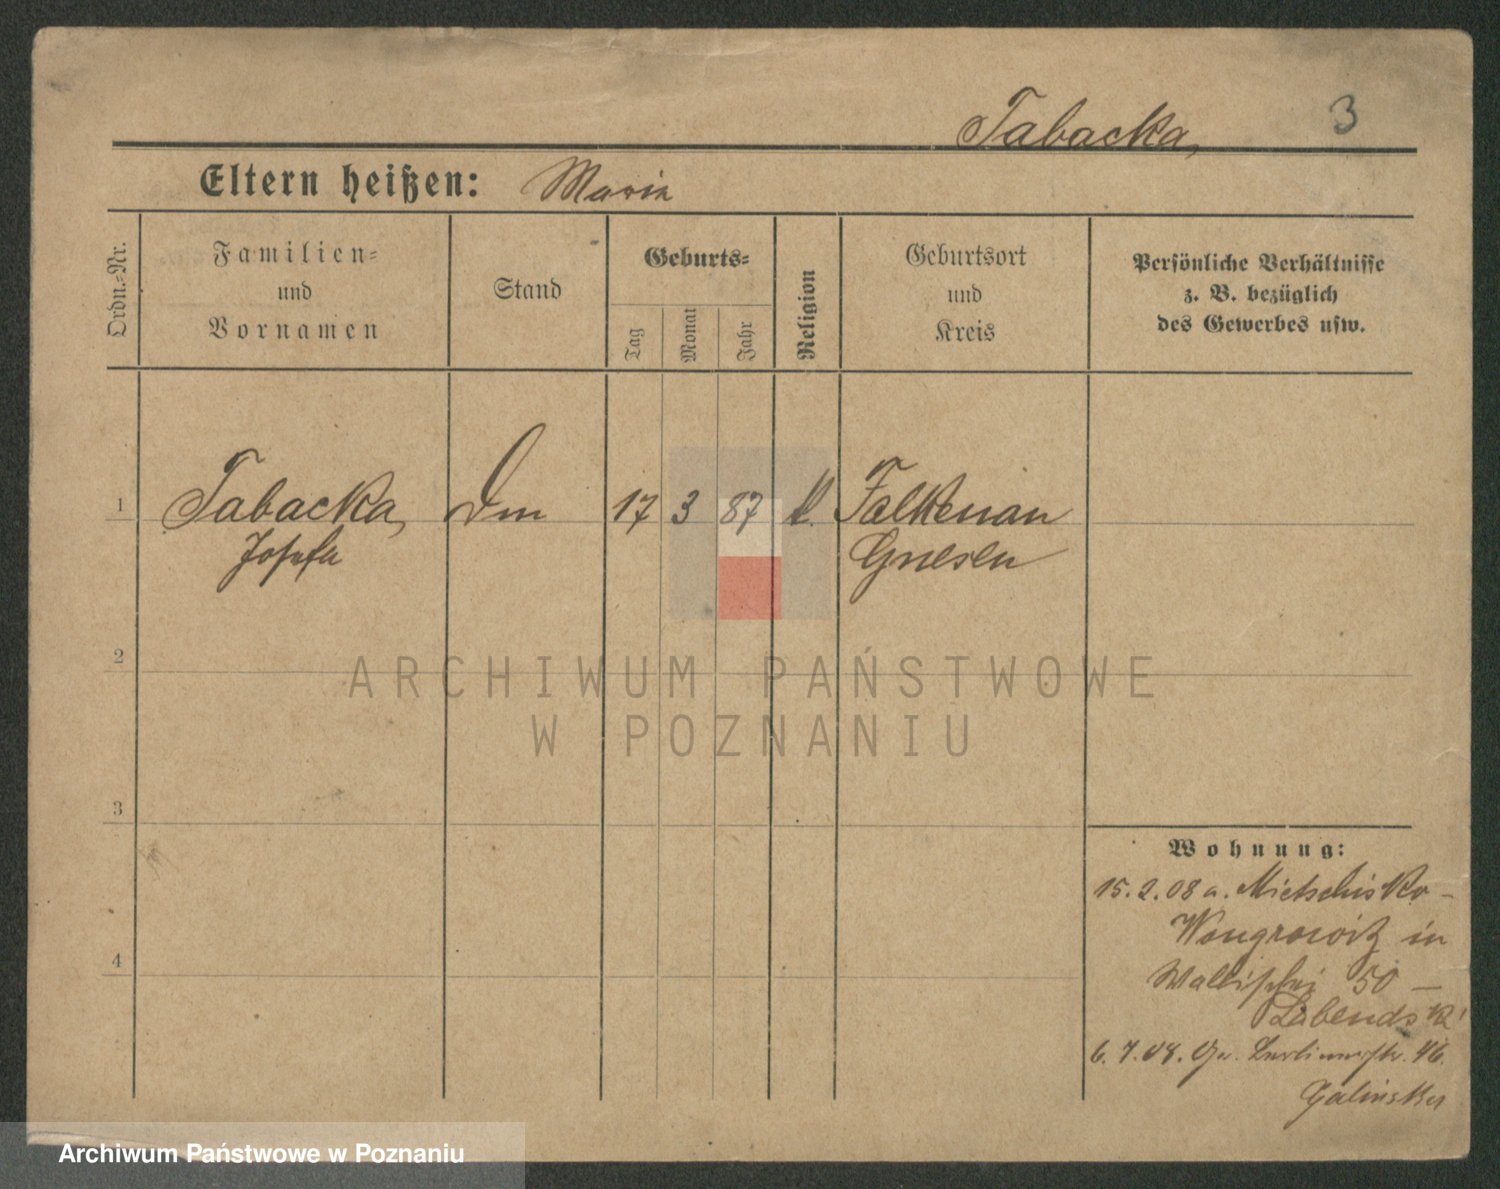 Tabacka, 3
Eltern heißen: Maria
Ordn.-Nr.
Familien-
und
Vornamen
Stand
Geburts-
Tag
Monat
Jahr
Religion
Geburtsort
und
Kreis
Persönliche Verhältnisse
z. B. bezüglich
des Gewerbes usw.
1 Tabacka, Dm 17 3 87 k. Falkenau
Josefa Gnesen
2
3
4
Wohnung:
15.2.08 a. Mietschisko-
Wongrowitz in
Wallischei 50 —
Labendski
6.7.08. Gr. Berlinerstr. 46.
Galinsker
ARCHIWUM PAŃSTWOWE
W POZNANIU
Archiwum Państwowe w Poznaniu